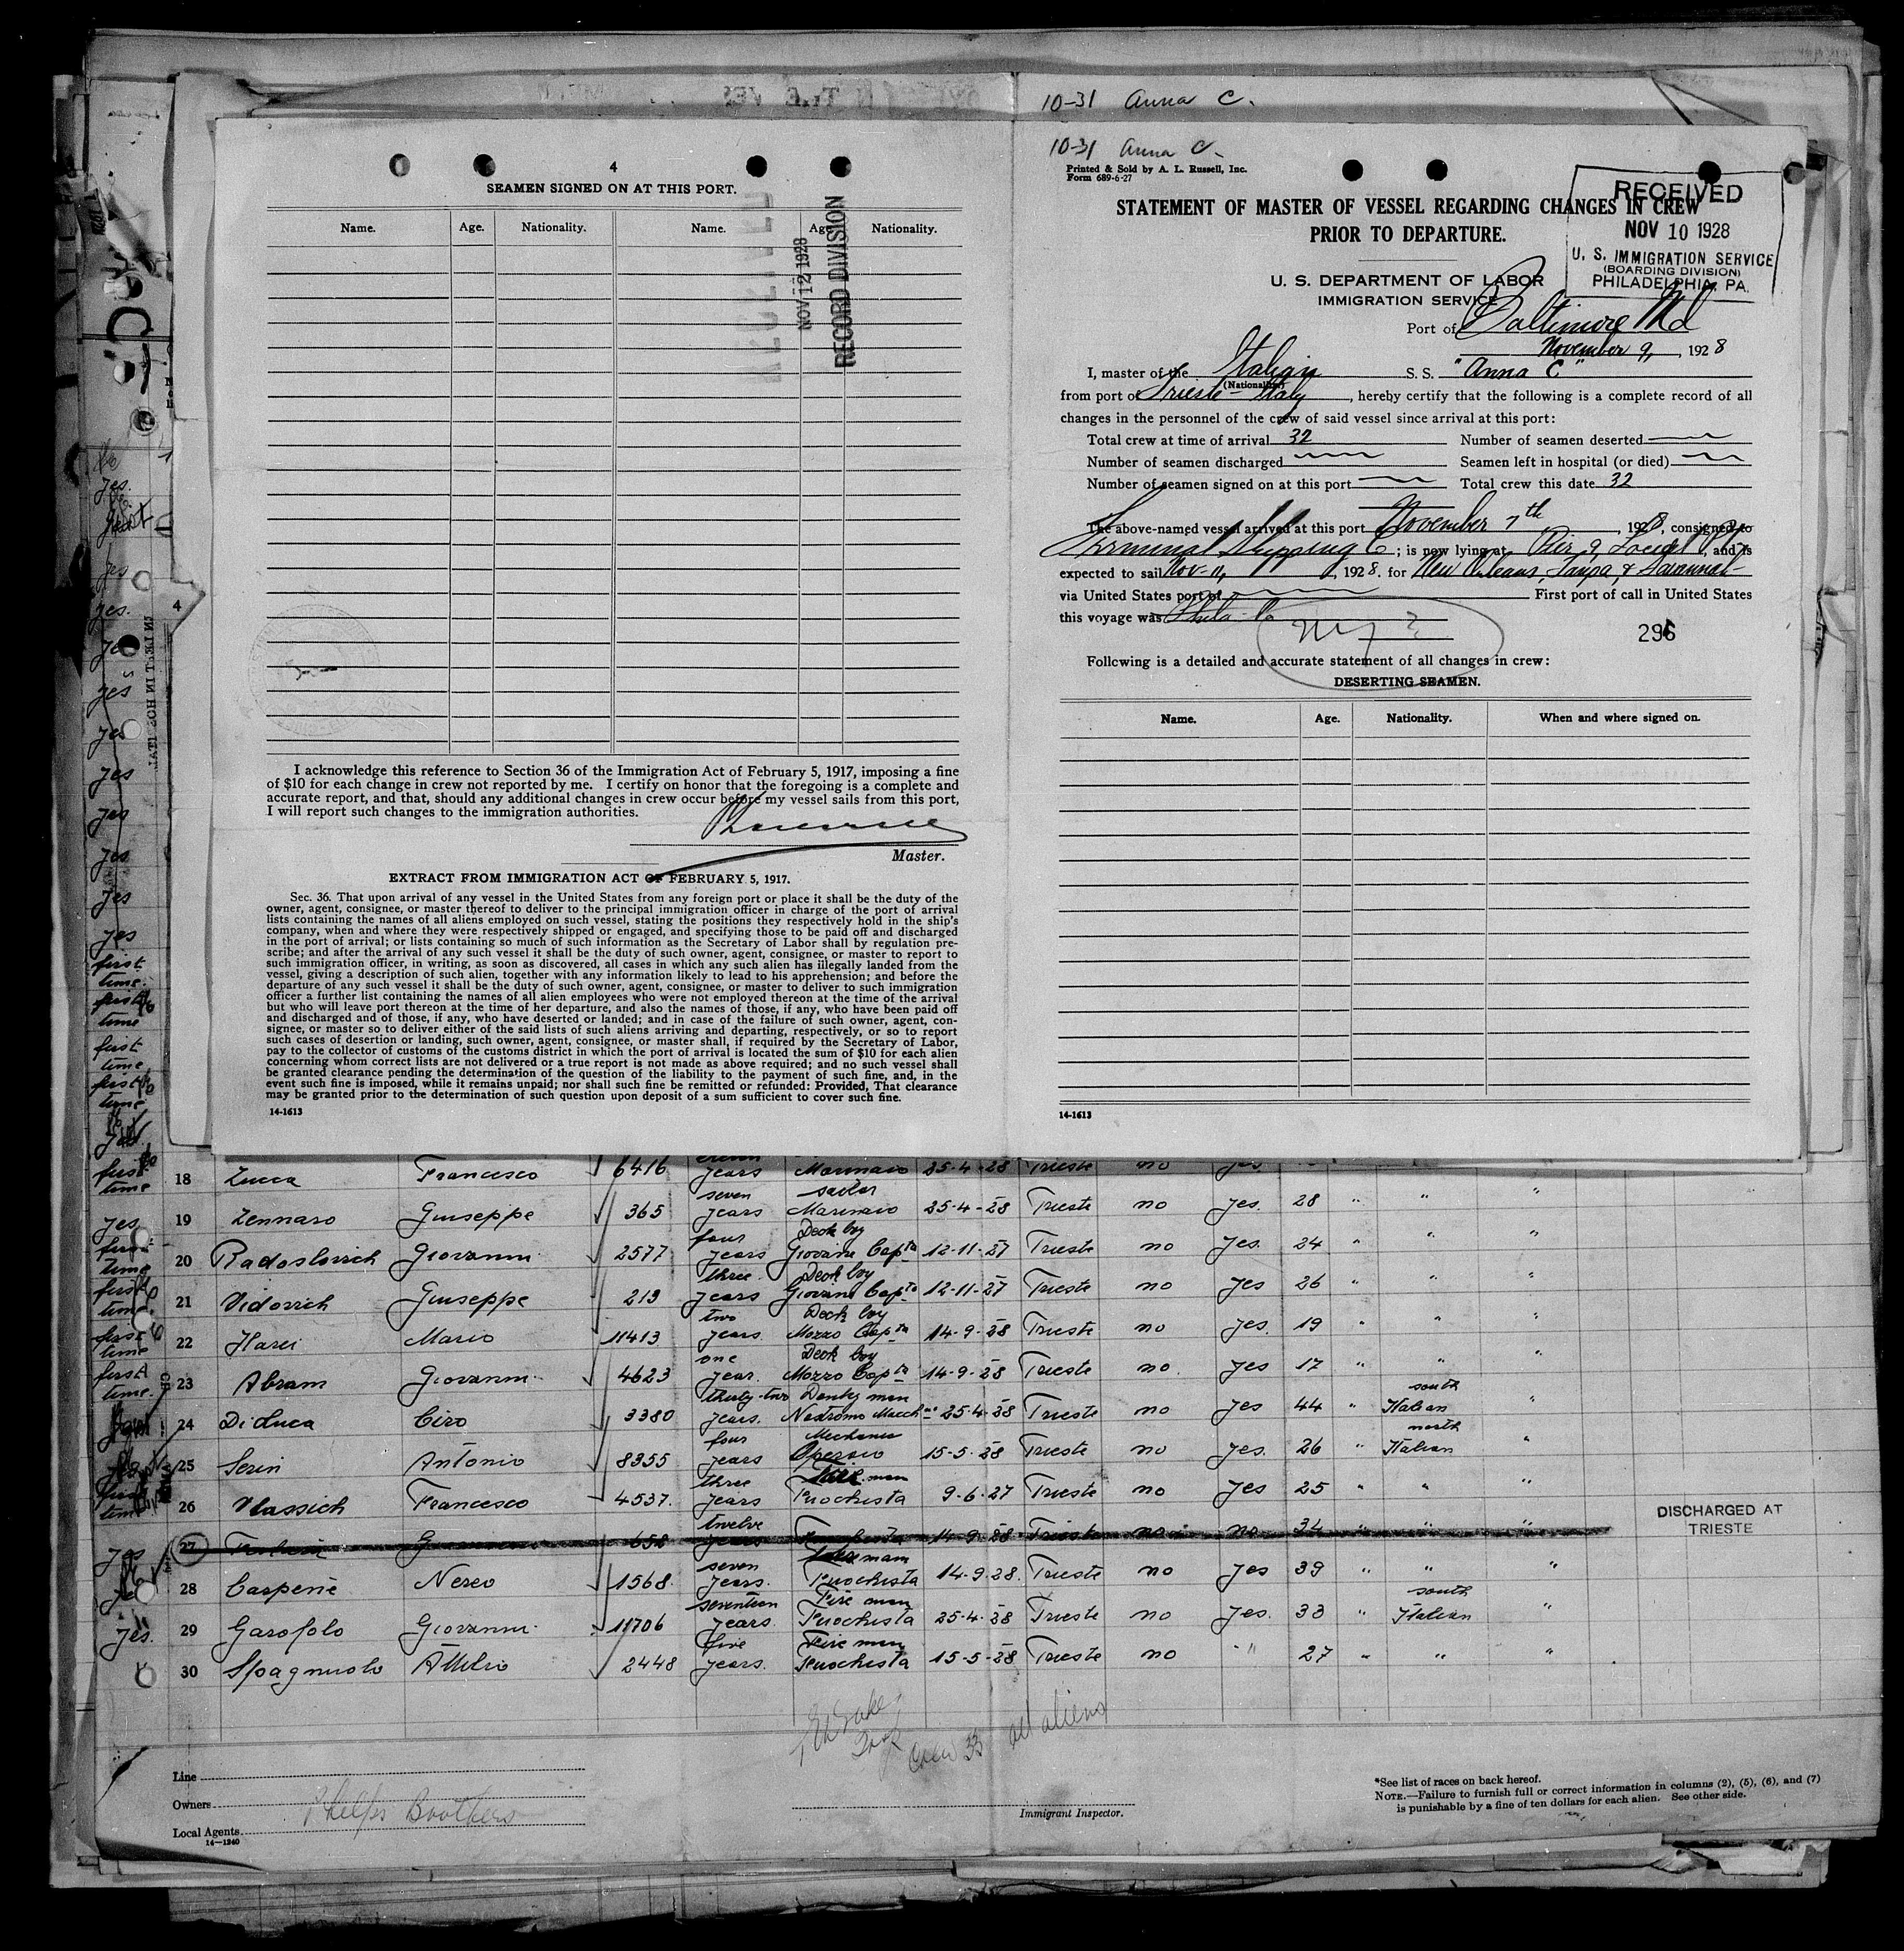 10-31 Anna C.
4
SEAMEN SIGNED ON AT THIS PORT.
Name. Age. Nationality. Name. Age. Nationality.
NOV 12 1928
RECORD DIVISION
I acknowledge this reference to Section 36 of the Immigration Act of February 5, 1917, imposing a fine
of $10 for each change in crew not reported by me. I certify on honor that the foregoing is a complete and
accurate report, and that, should any additional changes in crew occur before my vessel sails from this port,
I will report such changes to the immigration authorities.
Master.
EXTRACT FROM IMMIGRATION ACT OF FEBRUARY 5, 1917.
Sec. 36. That upon arrival of any vessel in the United States from any foreign port or place it shall be the duty of the
owner, agent, consignee, or master thereof to deliver to the principal immigration officer in charge of the port of arrival
lists containing the names of all aliens employed on such vessel, stating the positions they respectively hold in the ship's
company, when and where they were respectively shipped or engaged, and specifying those to be paid off and discharged
in the port of arrival; or lists containing so much of such information as the Secretary of Labor shall by regulation pre-
scribe; and after the arrival of any such vessel it shall be the duty of such owner, agent, consignee, or master to report to
such immigration officer, in writing, as soon as discovered, all cases in which any such alien has illegally landed from the
vessel, giving a description of such alien, together with any information likely to lead to his apprehension; and before the
departure of any such vessel it shall be the duty of such owner, agent, consignee, or master to deliver to such immigration
officer a further list containing the names of all alien employees who were not employed thereon at the time of the arrival
but who will leave port thereon at the time of her departure, and also the names of those, if any, who have been paid off
and discharged and of those, if any, who have deserted or landed; and in case of the failure of such owner, agent, con-
signee, or master so to deliver either of the said lists of such aliens arriving and departing, respectively, or so to report
such cases of desertion or landing, such owner, agent, consignee, or master shall, if required by the Secretary of Labor,
pay to the collector of customs of the customs district in which the port of arrival is located the sum of $10 for each alien
concerning whom correct lists are not delivered or a true report is not made as above required; and no such vessel shall
be granted clearance pending the determination of the question of the liability to the payment of such fine, and, in the
event such fine is imposed, while it remains unpaid; nor shall such fine be remitted or refunded: Provided, That clearance
may be granted prior to the determination of such question upon deposit of a sum sufficient to cover such fine.
14-1613
10-31 Anna C.
Printed & Sold by A. L. Russell, Inc.
Form 689-6-27
RECEIVED
NOV 10 1928
U. S. IMMIGRATION SERVICE
(BOARDING DIVISION)
PHILADELPHIA, PA.
STATEMENT OF MASTER OF VESSEL REGARDING CHANGES IN CREW
PRIOR TO DEPARTURE.
U. S. DEPARTMENT OF LABOR
IMMIGRATION SERVICE
Port of Baltimore Md
November 9, 1928
I, master of the Italian S. S. "Anna C"
(Nationality)
from port of Trieste - Italy, hereby certify that the following is a complete record of all
changes in the personnel of the crew of said vessel since arrival at this port:
Total crew at time of arrival 32 Number of seamen deserted
Number of seamen discharged Seamen left in hospital (or died)
Number of seamen signed on at this port Total crew this date 32
The above-named vessel arrived at this port November 7th, 1928, consigned to
Terminal Shipping Co; is now lying at Pier 9, Locust Pt, and is
expected to sail Nov-11, 1928. for New Orleans, Tampa, & Savannah
via United States port of First port of call in United States
this voyage was Phila Pa
296
Following is a detailed and accurate statement of all changes in crew:
DESERTING SEAMEN.
Name. Age. Nationality. When and where signed on.
14-1613
18 Zucca Francesco 6416 years Marinaio 25-4-28 Trieste no yes
seven sailor
19 Zennaro Giuseppe 365 years Marinaio 25-4-28 Trieste no yes. 28 " " "
four Deck boy
20 Radoslovich Giovanni 2577 years Giovane Copta 12-11-27 Trieste no yes. 24 " " "
three Deck boy
21 Vidovich Giuseppe 213 years Giovane Copta 12-11-27 Trieste no yes 26 " " "
two Deck boy
22 Harei Mario 11413 years Mozzo Copta 14-9-28 Trieste no yes. 19 " " "
one Deck boy
23 Abram Giovanni 4623 year. Mozzo Copta 14-9-28 Trieste no. yes 17 " " "
thirty-two Donky man south
24 Di Luca Ciro 3380 years. Nostromo Macch 25-4-28 Trieste no yes 44 " Italian "
four Mechanic north
25 Serin Antonio 8355 years Operaio 15-5-28 Trieste no yes. 26 " Italian "
three Fire man
26 Vlassich Francesco 4537. years Fuochista 9-6-27 Trieste no yes 25 " " "
twelve
27 658 years Fuochista 14-9-28 Trieste no no 34 " " "
DISCHARGED AT
TRIESTE
seven Fireman
28 Carpenè Nereo 1568 years. Fuochista 14-9-28. Trieste no yes 39 " " "
seventeen Fire man south
29 Garofolo Giovanni 11706 years. Fuochista 25-4-28 Trieste no yes. 33 " Italian "
five Fire man
30 Spagnuolo Attilio 2448 years. Fuochista 15-5-28 Trieste no " 27 " " "
Crew 33 all aliens
Line
Owners
Phelps Brothers
Local Agents
14-1240
Immigrant Inspector.
*See list of races on back hereof.
NOTE.—Failure to furnish full or correct information in columns (2), (5), (6), and (7)
is punishable by a fine of ten dollars for each alien. See other side.